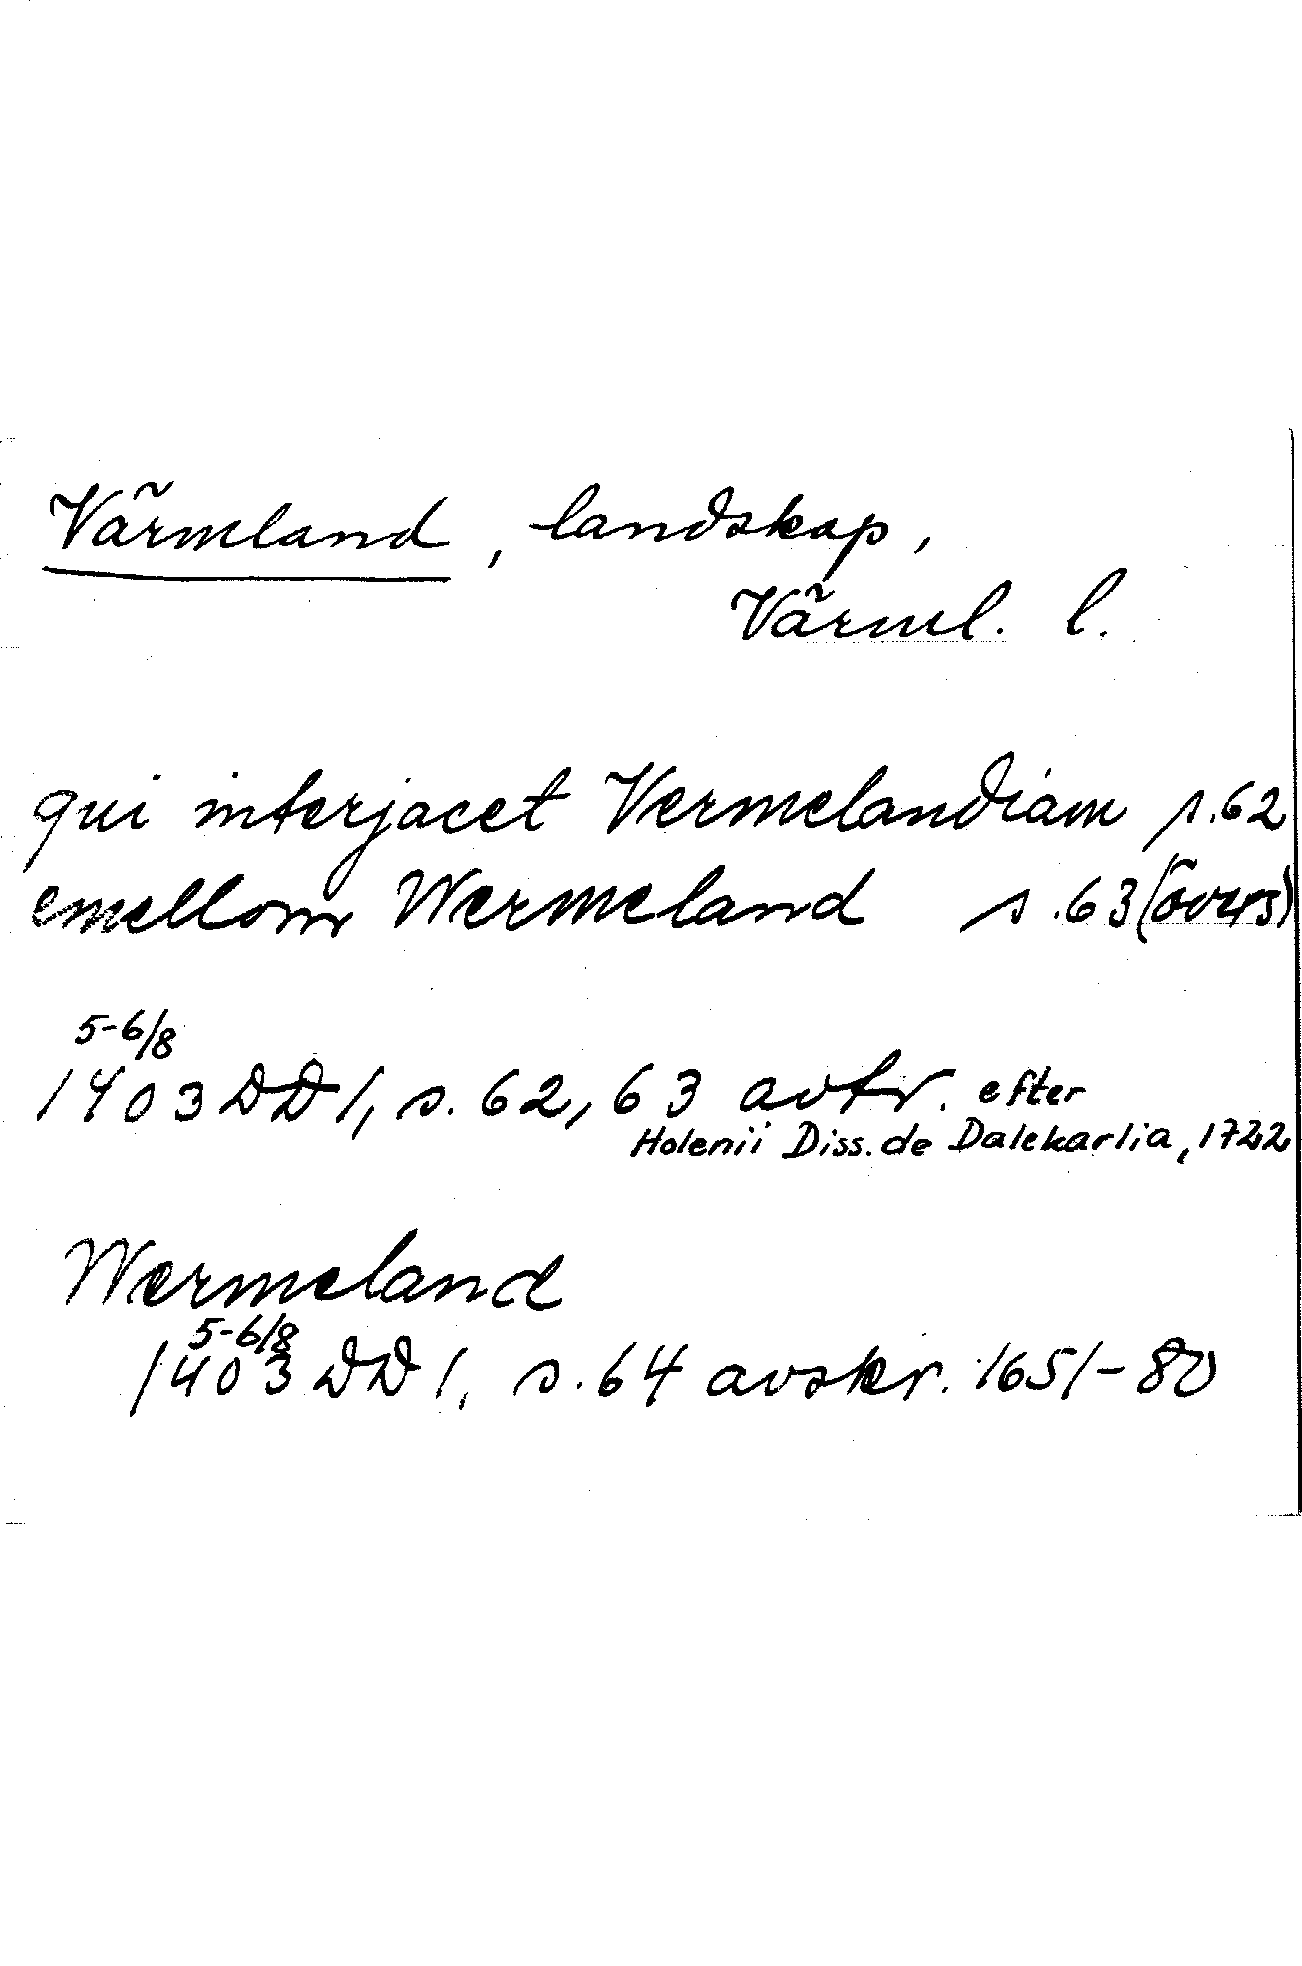 Värmland, landskap,
Värml. l.
qui interjacet Vermelandiam s.62
emellom Wermeland s.63 (övers)
5-6/8
1403 DD 1, s. 62, 63 avtr. efter
Holenii Diss. de Dalekarlia, 1722
Wermeland
5-6/8
1403 DD 1, s. 64 avskr. 1651-80